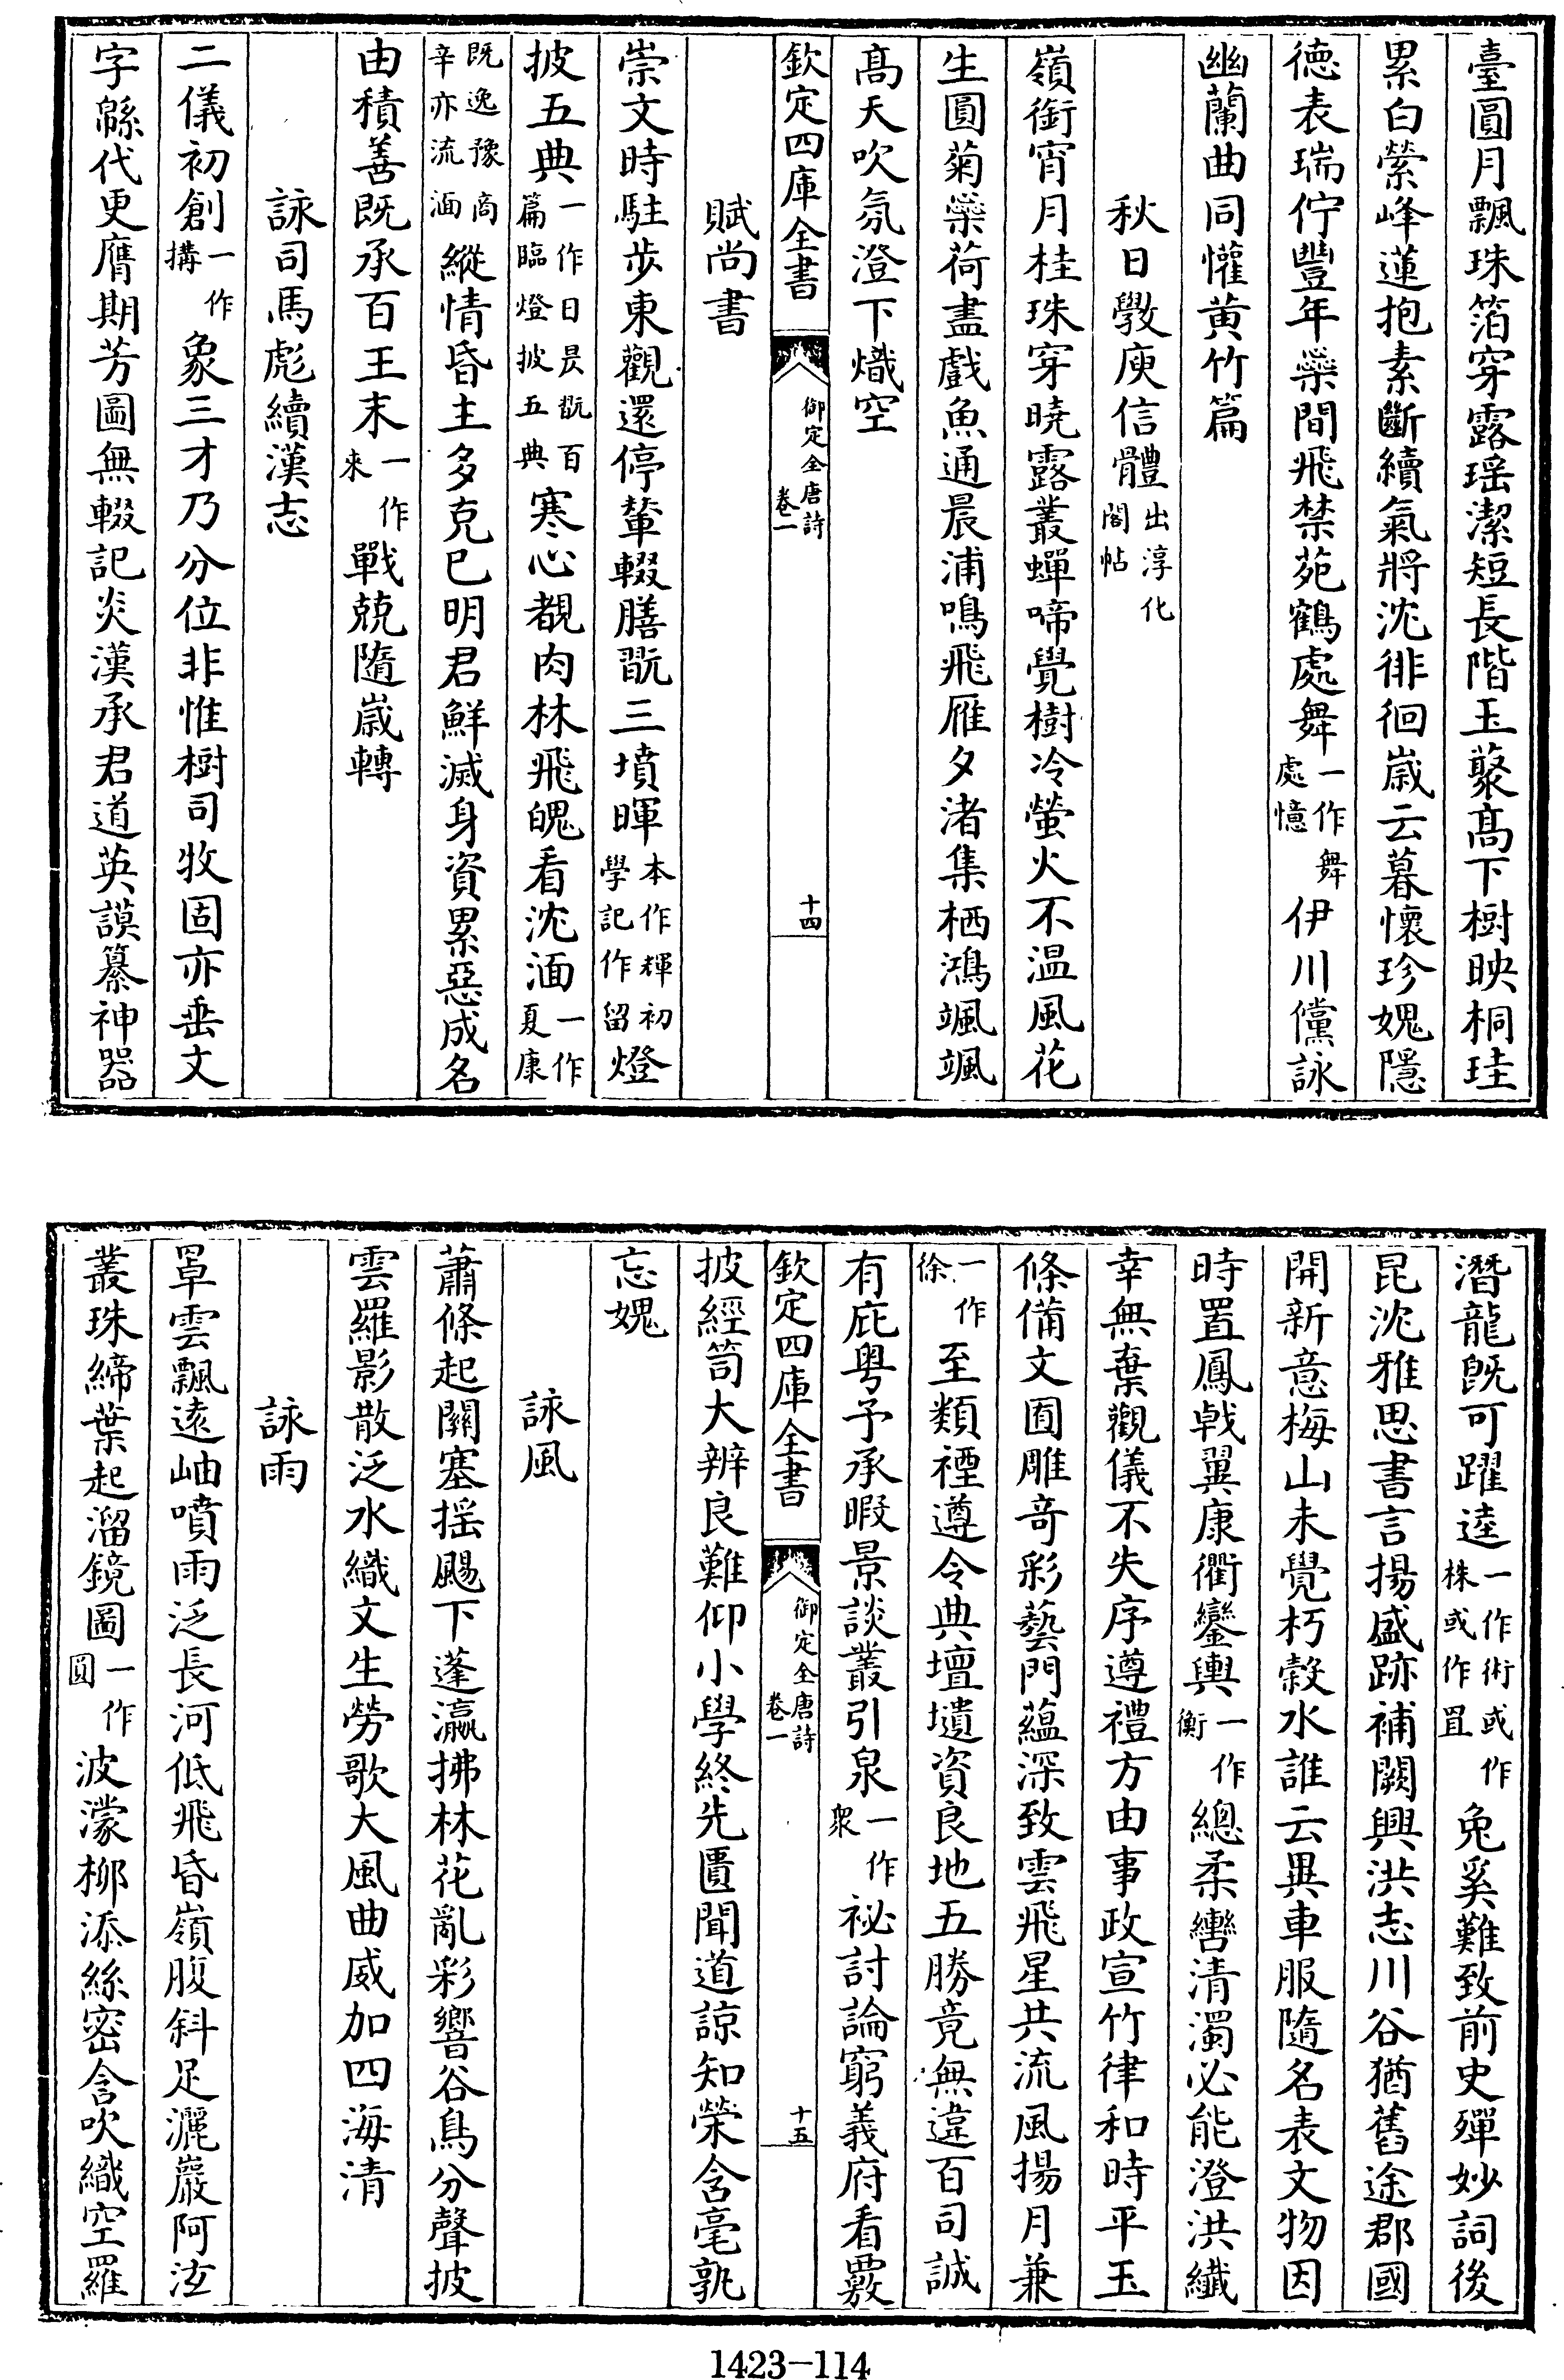 臺圓月飄珠箔穿露瑶潔短長階玉藂髙下樹映桐珪
累白縈峰蓮抱素斷續氣將沈徘徊嵗云暮懷珍媿隱
徳表瑞佇豐年蘂間飛禁苑鶴處舞一作舞處憶伊川儻詠
幽蘭曲同懽黄竹篇
秋日斆庾信體出淳化閣帖
嶺銜宵月桂珠穿曉露叢蟬啼覺樹冷螢火不温風花
生圓菊蘂荷盡戲魚通晨浦鳴飛雁夕渚集栖鴻颯颯
髙天吹氛澄下熾空
欽定四庫全書 御定全唐詩 卷一 十四
賦尚書
崇文時駐歩東觀還停輦輟膳翫三墳暉本作輝初學記作留燈
披五典一作日昃翫百篇臨燈披五典寒心覩肉林飛魄看沈湎一作夏康
既逸豫商辛亦流湎縱情昏主多克已明君鮮滅身資累惡成名
由積善既承百王末一作来戰兢隨嵗轉
詠司馬彪續漢志
二儀初創一作搆象三才乃分位非惟樹司牧固亦垂文
字緜代更膺期芳圖無輟記炎漢承君道英謨纂神器
潛龍旣可躍逵一作術或作株或作罝兔奚難致前史殫妙詞後
昆沈雅思書言揚盛跡補闕興洪志川谷猶舊途郡國
開新意梅山未覺朽榖水誰云異車服隨名表文物因
時置鳳戟翼康衢鑾輿一作衡總柔轡清濁必能澄洪纖
幸無棄觀儀不失序遵禮方由事政宣竹律和時平玉
條備文囿雕奇彩藝門藴深致雲飛星共流風揚月兼
一作徐至類禋遵令典壇壝資良地五勝竟無違百司誠
有庇粤予承暇景談叢引泉一作衆祕討論窮義府看覈
欽定四庫全書 御定全唐詩 卷一 十五
披經笥大辨良難仰小學終先匱聞道諒知榮含毫孰
忘媿
詠風
蕭條起關塞摇颺下蓬瀛拂林花亂彩響谷鳥分聲披
雲羅影散泛水織文生勞歌大風曲威加四海清
詠雨
罩雲飄遠岫噴雨泛長河低飛昏嶺腹斜足灑巖阿泫
叢珠締葉起溜鏡圖一作圓波濛栁添絲密含吹織空羅
1423—114